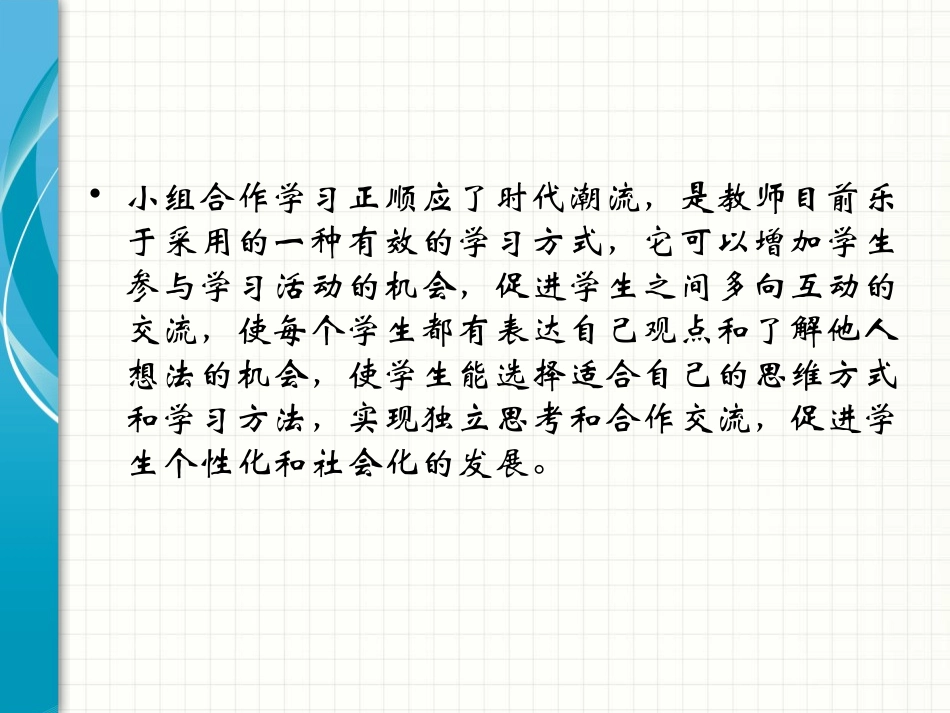 • 小组合作学习正顺应了时代潮流，是教师目前乐
于采用的一种有效的学习方式，它可以增加学生
参与学习活动的机会，促进学生之间多向互动的
交流，使每个学生都有表达自己观点和了解他人
想法的机会，使学生能选择适合自己的思维方式
和学习方法，实现独立思考和合作交流，促进学
生个性化和社会化的发展。